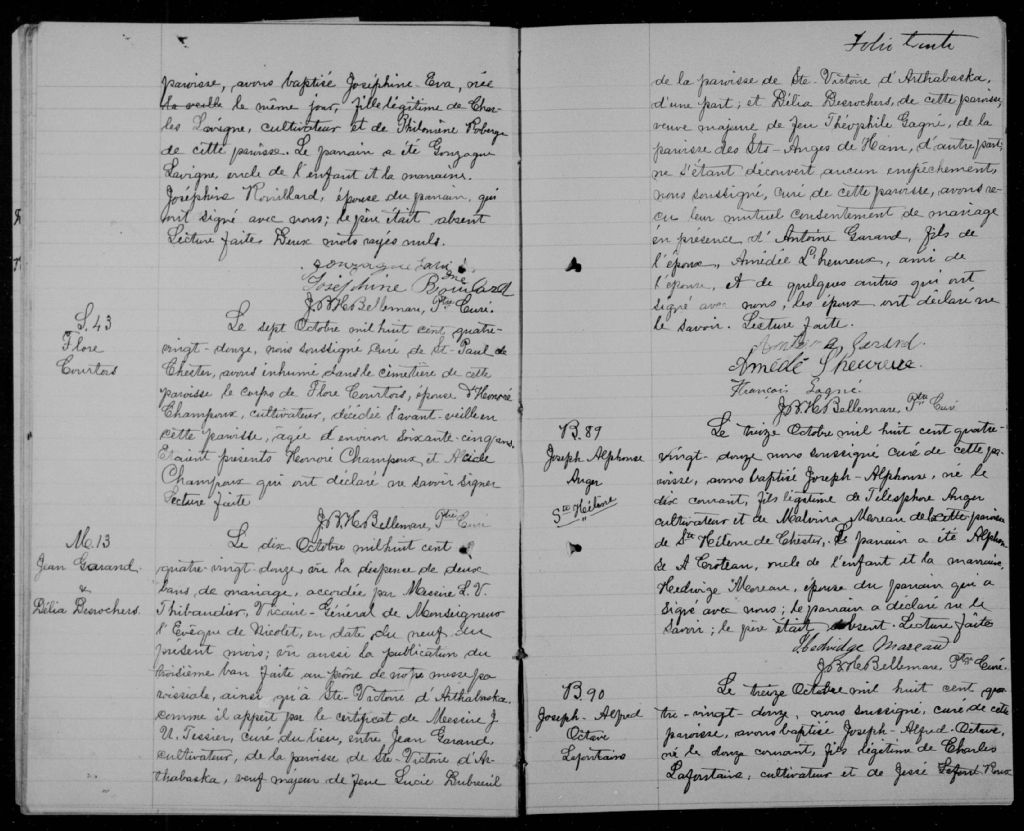 paroisse, avons baptisé Joséphine Eva, née
la veille le même jour, fille légitime de Char-
les Lavigne, cultivateur et de Philomène Roberge
de cette paroisse. Le parrain a été Gonzague
Lavigne, oncle de l'enfant et la marraine
Joséphine Rouillard, épouse du parrain, qui
ont signé avec nous; le père était absent
Lecture faite. Deux mots rayés nuls.
Gonzague Lavigne
Joséphine Rouillard
J.B.H. Bellemare, Ptre Curé.
S. 43
Flore
Courtois
Le sept Octobre mil huit cent quatre-
vingt-douze, nous soussigné curé de St-Paul de
Chester, avons inhumé dans le cimetière de cette
paroisse le corps de Flore Courtois, épouse d'Honoré
Champoux, cultivateur, décédée l'avant-veille en
cette paroisse, âgée d'environ soixante-cinq ans.
Etaient présents Honoré Champoux et
Champoux qui ont déclaré ne savoir signer
Lecture faite
J.B.H. Bellemare, Ptre Curé
M. 13
Jean Garand
&
Délia Desrochers.
Le dix Octobre mil huit cent
quatre-vingt-douze, vu la dispense de deux
bans de mariage, accordée par Messire L. V.
Thibaudier, Vicaire-Général de Monseigneur
l'Evêque de Nicolet, en date du neuf du
présent mois; vu aussi la publication du
troisième ban faite au prône de notre messe pa-
roissiale, ainsi qu'à Ste-Victoire d'Arthabaska
comme il appert par le certificat de Messire J.
U. Tessier, curé du lieu, entre Jean Garand,
cultivateur, de la paroisse de Ste-Victoire d'Ar-
thabaska, veuf majeur de feue Lucie Dubreuil
Folio trente
de la paroisse de Ste-Victoire d'Arthabaska,
d'une part; et Délia Desrochers, de cette paroisse,
veuve majeure de feu Théophile Gagné, de la
paroisse des Sts-Anges de Ham, d'autre part;
ne s'étant découvert aucun empêchement,
nous soussigné, curé de cette paroisse, avons re-
çu leur mutuel consentement de mariage
en présence d'Antoine Garand, fils de
l'époux, Amédée L'heureux, ami de
l'épouse, et de quelques autres qui ont
signé avec nous; les époux ont déclaré ne
le savoir. Lecture faite.
Antoine Garand.
Amédé Lheureux
François Gagné
J.B.H. Bellemare, Ptre Curé
B. 89
Joseph Alphonse
Anger
Ste Hélène
Le treize Octobre mil huit cent quatre-
vingt-douze nous soussigné curé de cette pa-
roisse, avons baptisé Joseph-Alphonse, né le
dix courant, fils légitime de Télesphore Anger
cultivateur et de Malvina Moreau de cette paroisse
de Ste Hélène de Chester. Le parrain a été Alphon-
se A Croteau, oncle de l'enfant et la marraine
Hedwige Moreau, épouse du parrain qui a
signé avec nous; le parrain a déclaré ne le
savoir; le père était absent. Lecture faite
Hedvidge Moreau
J.B.H. Bellemare, Ptre Curé.
B. 90
Joseph-Alfred
Octave
Lafontaine
Le treize Octobre mil huit cent qua-
tre-vingt-douze, nous soussigné, curé de cette
paroisse, avons baptisé Joseph-Alfred-Octave,
né le douze courant, fils légitime de Charles
Lafontaine, cultivateur et de Jessé Roux